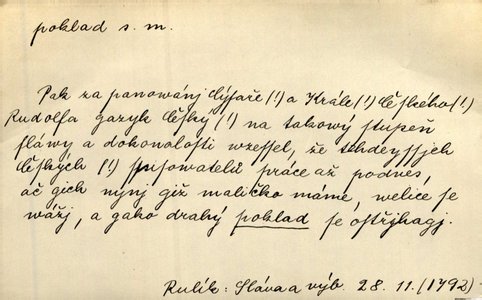 poklad s. m.
Pak za panowánj Cýsaře (!) a Krále (!) Českého (!)
Rudolfa gazyk Český (!) na takový stupeň
sláwy a dokonalosti wzessel, že tehdeyssjch
Českých (!) spisowatelů práce až podnes,
ač gich nynj giž maličko máme, welice se
wážj, a gako drahý poklad se ostřjhagj.
Rulík: Sláva a výb. 28. 11. (1792)